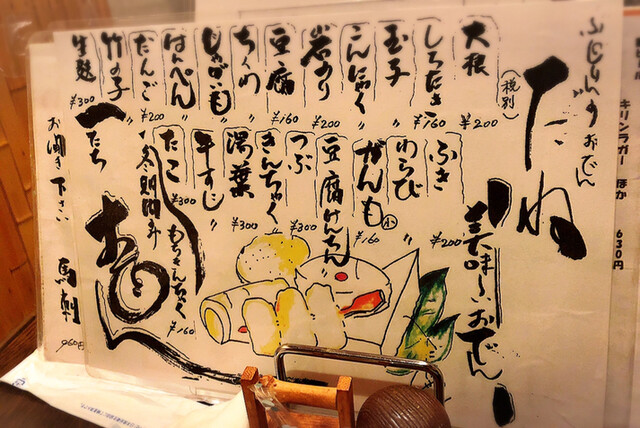 キリンラガー ほか 630円
おでん
たね
(税別)
大根 ¥200
しらたき ¥160
玉子 〃
こんにゃく 〃
岩のり ¥200
豆腐 ¥160
ちくわ 〃
じゃがいも 〃
はんぺん 〃
だんご ¥200
竹の子 〃
生麩 ¥300
美味しいおでん
ふき ¥200
わらび 〃
がんも小 ¥160
豆腐けんちん 〃
つぶ ¥300
きんちゃく 〃
湯葉 ¥300
牛すじ 〃
たこ ¥300
もちきんちゃく ¥160
お聞き下さい
馬刺
960円